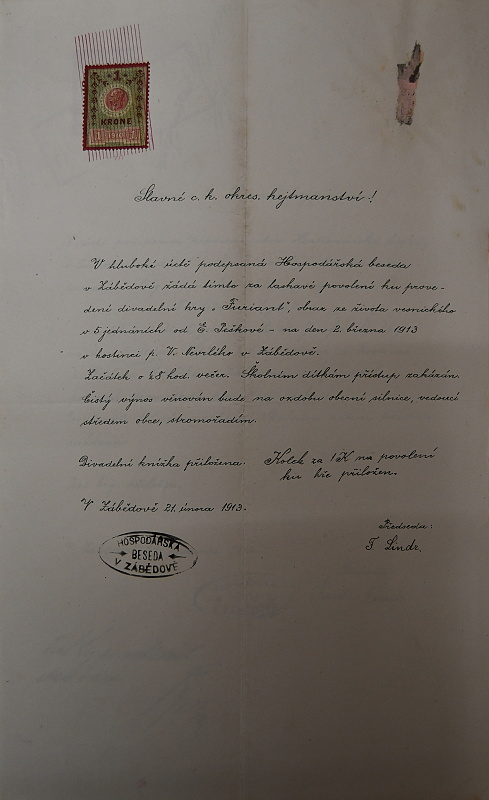 1
KRONE
Slavné c. k. okres. hejtmanství!
V hluboké úctě podepsaná Hospodářská beseda
v Zábědově žádá tímto za laskavé povolení ku prove-
dení divadelní hry „Furiant“, obraz ze života vesnického
v 5 jednáních od E. Peškové – na den 2. března 1913
v hostinci p. V. Nevrlého v Zábědově.
Začátek o ½8 hod. večer. Školním dítkám přístup zakázán.
Čistý výnos věnován bude na ozdobu obecní silnice, vedoucí
středem obce, stromořadím.
Divadelní knížka přiložena.
Kolek za 1K na povolení
ku hře přiložen.
V Zábědově 21. února 1913.
Předseda:
HOSPODÁŘSKÁ
BESEDA
V ZÁBĚDOVĚ
Lindr.